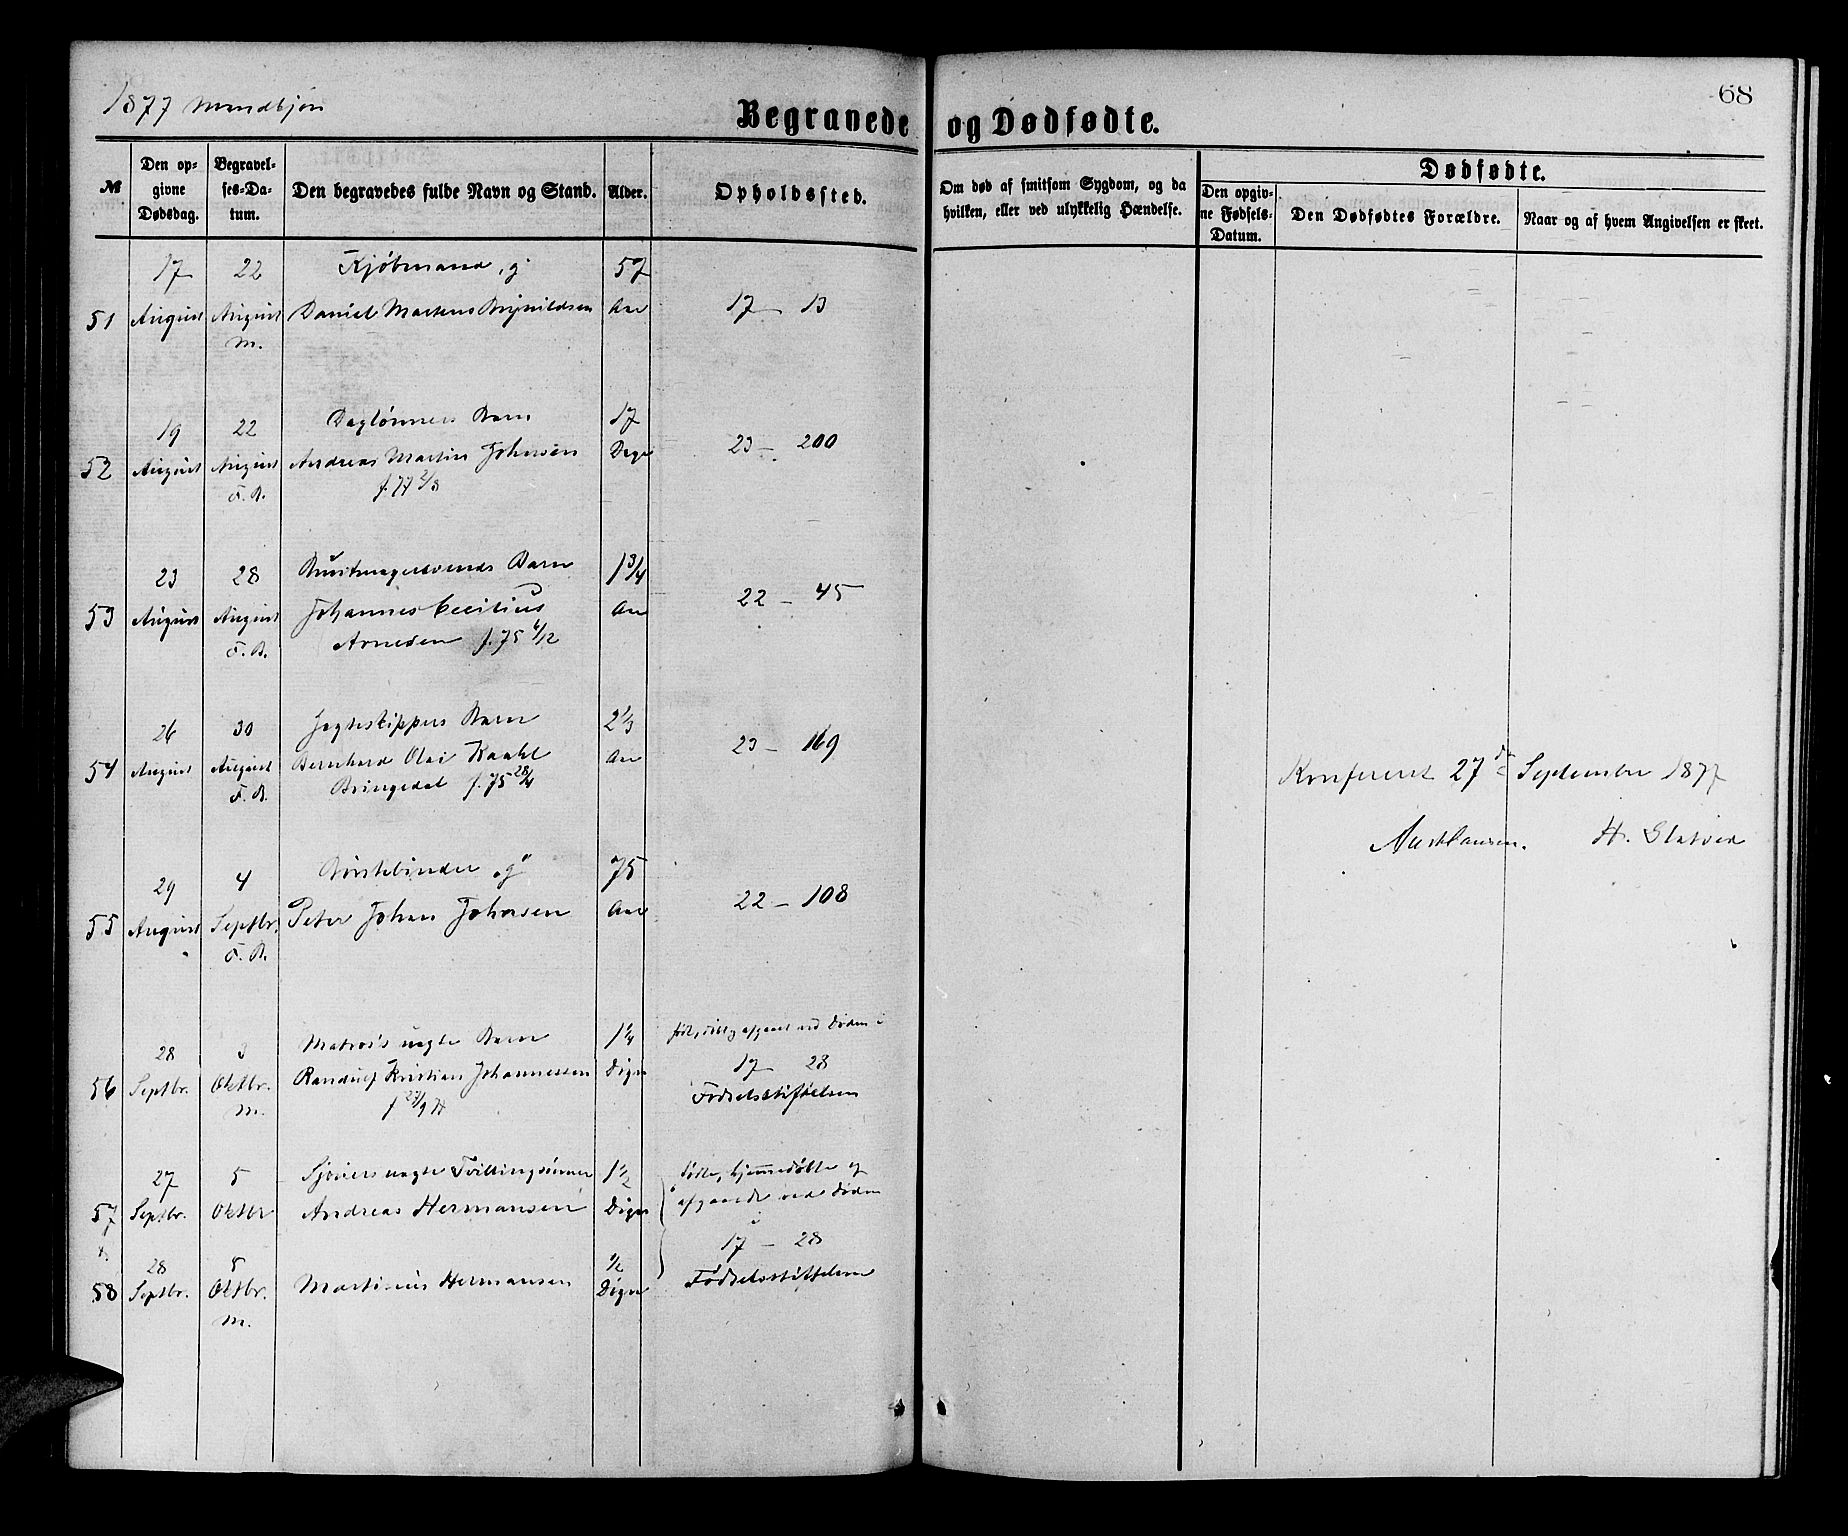 1877 Mandkjøn
68
Begravede og Dødfødte.
№
Den opgivne Dødsdag.
Begravelses-Datum.
Den begravedes fulde Navn og Stand.
Alder.
Opholdssted.
Om død af smitsom Sygdom, og da hvilken, eller ved ulykkelig Hændelse.
Dødfødte.
Den opgivne Fødsels-Datum.
Den Dødfødtes Forældre.
Naar og af hvem Angivelsen er skeet.
17 22 Kjøbmand, g 57
51 August August Daniel Martens Brynildsen Aar 17 — 13
M.
19 22 Dagлønners Barn 17
52 August August Andreas Martin Johnsen Dage 23 — 200
F. B. f. 77 2/8
23 28 Barn 1 3/4
53 August August Johannes Cecilius Aar 22 — 45
F. B. Arnesen f. 75 6/12
26 30 Jagteskippers Barn 2 1/3
54 August August Bernhard Olai Kaahl Aar 23 — 169
F. B. Bringedal f. 75 28/4
Konfereret 27de September 1877
29 4 Børstebinder "g" 75
55 August Septbr. Peter Johan Johnsen Aar 22 — 108
F. B.
28 3 Matros's uægte Barn 1 1/4 afgaaet ved Døden i
56 Septbr. Oktbr. Randulf Kristian Johannessen Døgn 17 28
M. f 27/9 77 Fødselsstiftelsen
27 5 Sjøiers uægte Tvillingsønner 1 1/2 fødte, hjemmedøbte og
57 Septbr. Oktbr Andreas Hermansen Døgn afgaaede ved Døden
&
17 — 28
28 5 1/2 Fødselsstiftelsen
58 Septbr. Oktbr. Martinius Hermansen Døgn
M.